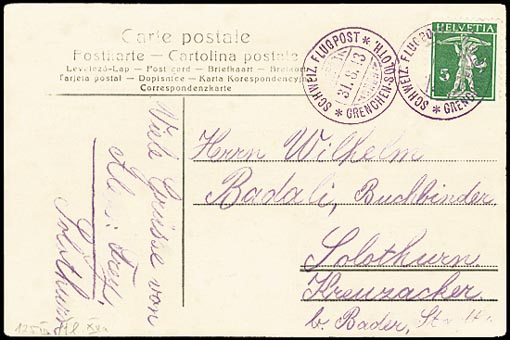 Carte postale
Postkarte — Cartolina postale
Levelező-Lap — Post card — Briefkaart — Brefkort
Tarjeta postal — Dopisnice — Karta Korespondencyjna
Correspondenzkarte
SCHWEIZ. FLUGPOST
31.8.13
GRENCHEN-SOLOTH.
SCHWEIZ. FLUGPO
GRENC
HELVETIA
5
Viele Grüsse von
Solothurn
Herrn Wilhelm
Badali, Buchbinder
Solothurn.
Kreuzacker.
b. Bader,